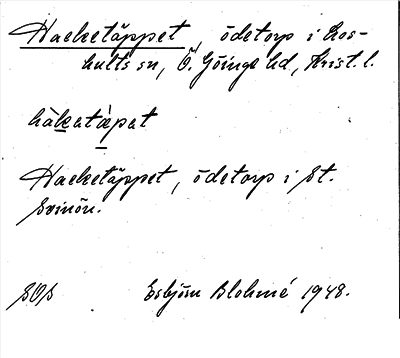 Hacketäppet, ödetorp i Los-
hults sn, Ö. Göinge hd, Krist. l.
hàkatä̀pat
Hacketäppet, ödetorp i St.
Svinön.
SOS Esbjörn Blohmé 1948.